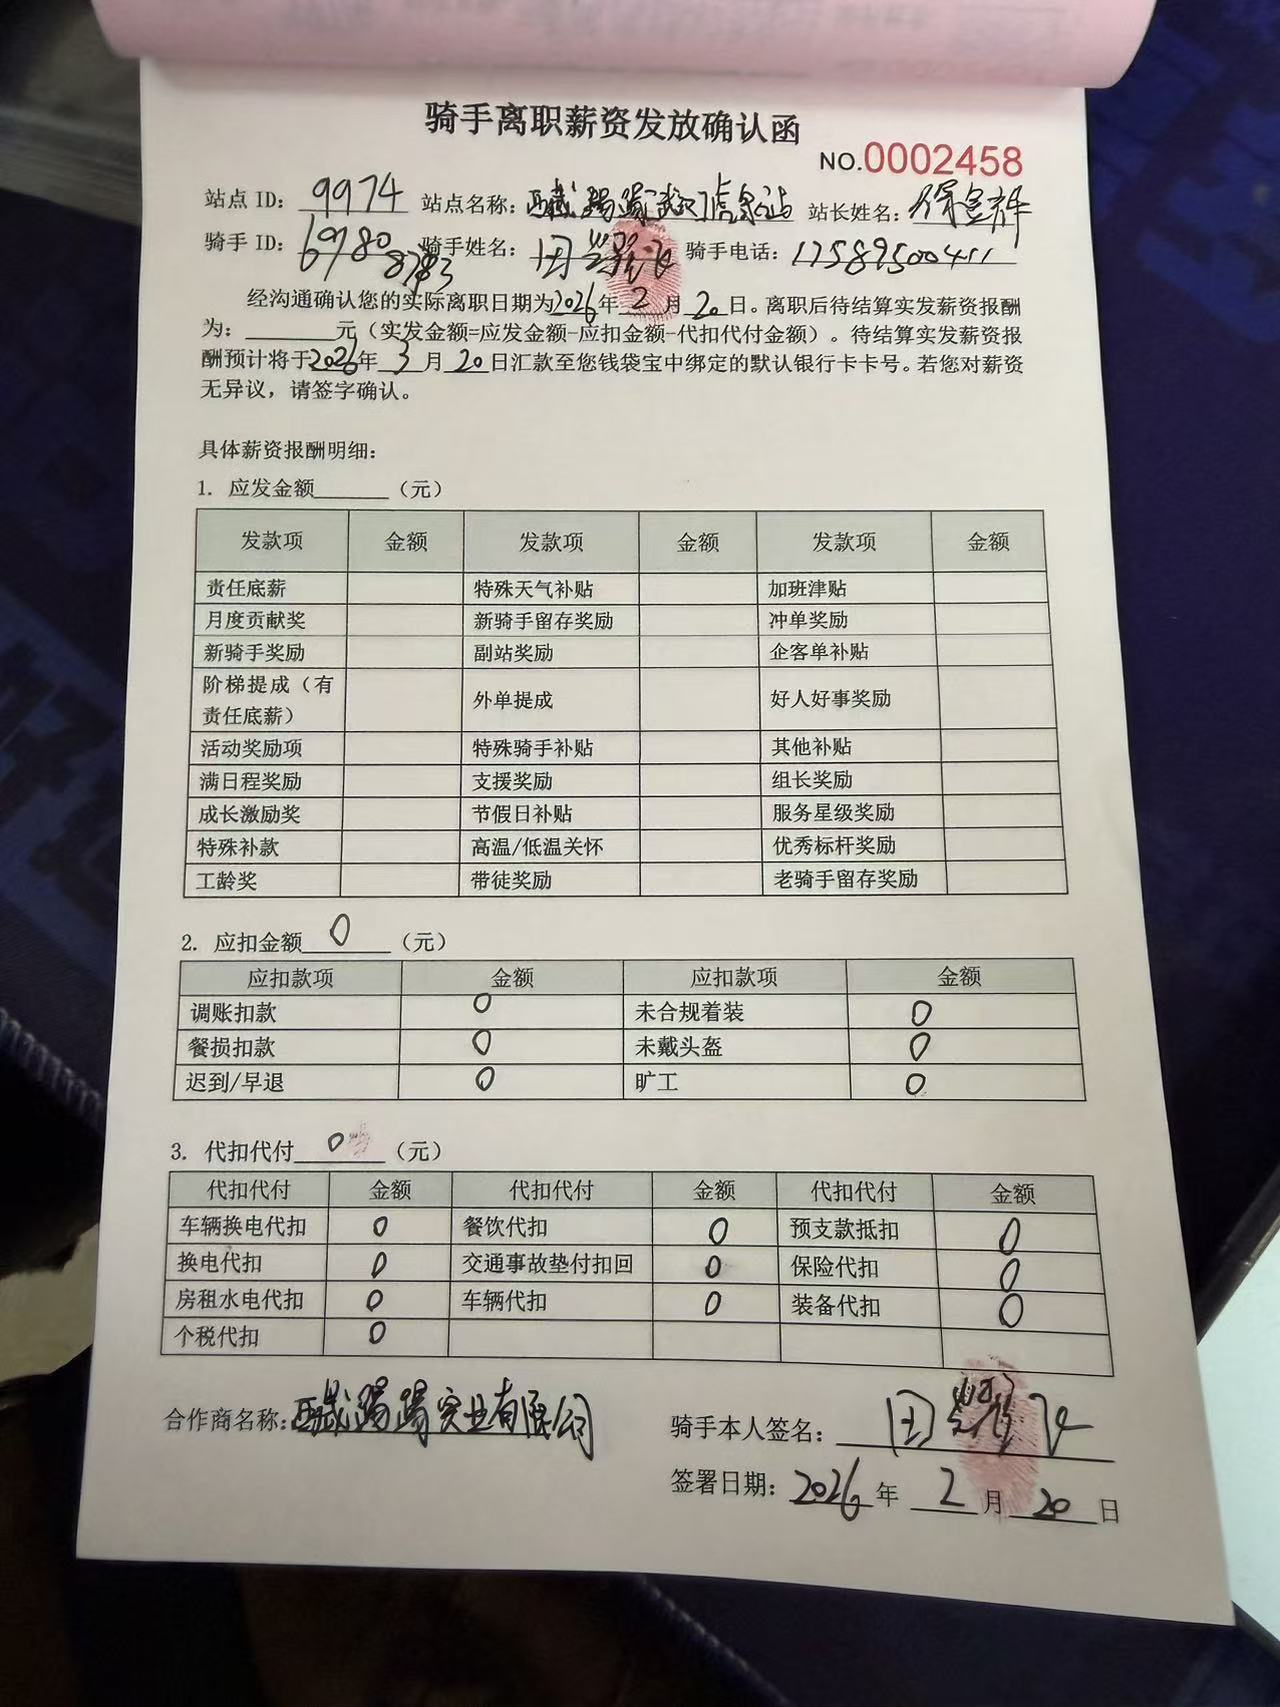 骑手离职薪资发放确认函
NO.0002458
站点 ID: 9974 站点名称: 站长姓名:
骑手 ID: 69780 8783 骑手姓名: 田 飞 骑手电话:
经沟通确认您的实际离职日期为2026年 2 月 20 日。离职后待结算实发薪资报酬
为: 元（实发金额=应发金额-应扣金额-代扣代付金额）。待结算实发薪资报
酬预计将于2026年 3 月 20 日汇款至您钱袋宝中绑定的默认银行卡卡号。若您对薪资
无异议，请签字确认。
具体薪资报酬明细:
1. 应发金额 （元）
发款项 金额 发款项 金额 发款项 金额
责任底薪 特殊天气补贴 加班津贴
月度贡献奖 新骑手留存奖励 冲单奖励
新骑手奖励 副站奖励 企客单补贴
阶梯提成（有
责任底薪） 外单提成 好人好事奖励
活动奖励项 特殊骑手补贴 其他补贴
满日程奖励 支援奖励 组长奖励
成长激励奖 节假日补贴 服务星级奖励
特殊补款 高温/低温关怀 优秀标杆奖励
工龄奖 带徒奖励 老骑手留存奖励
2. 应扣金额 0 （元）
应扣款项 金额 应扣款项 金额
调账扣款 0 未合规着装 0
餐损扣款 0 未戴头盔 0
迟到/早退 0 旷工 0
3. 代扣代付 0 （元）
代扣代付 金额 代扣代付 金额 代扣代付 金额
车辆换电代扣 0 餐饮代扣 0 预支款抵扣 0
换电代扣 0 交通事故垫付扣回 0 保险代扣 0
房租水电代扣 0 车辆代扣 0 装备代扣 0
个税代扣 0
合作商名称: 西藏踢踢实业有限公司
骑手本人签名: 田 飞
签署日期: 2026 年 2 月 20 日